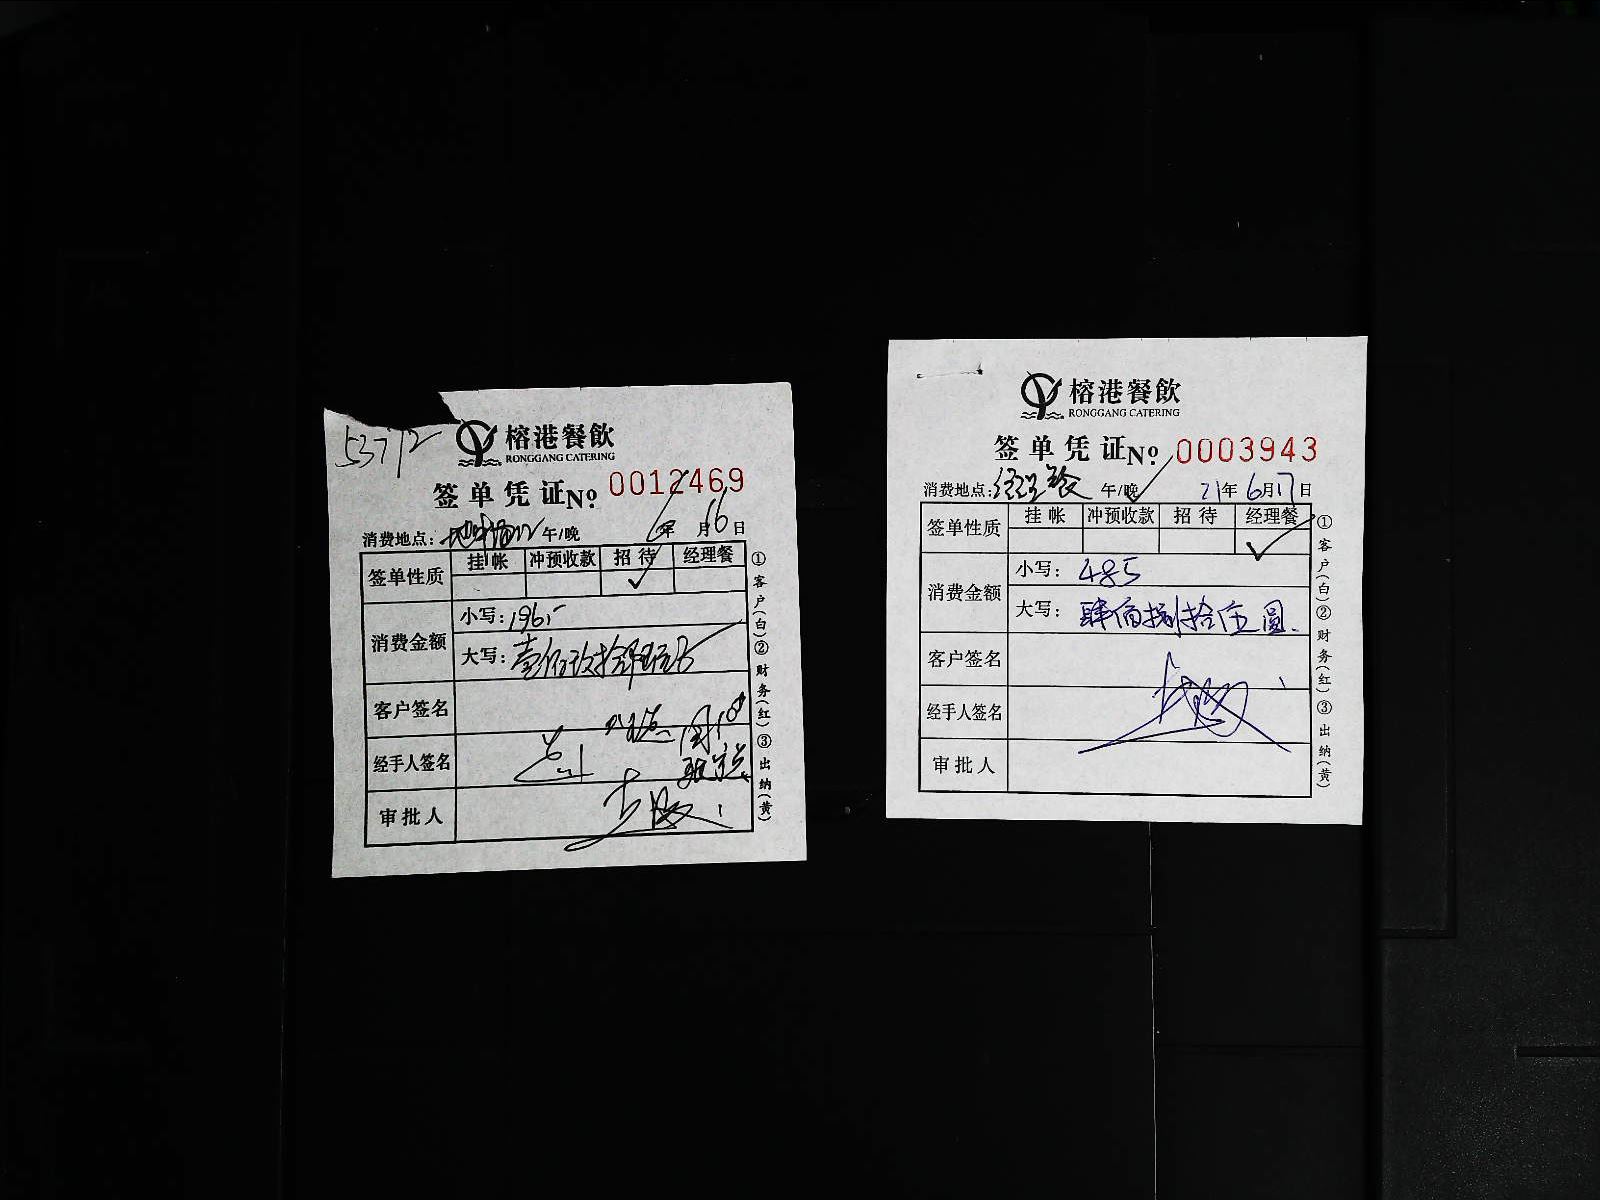 53772
榕港餐飲
RONGGANG CATERING
签单凭证No. 0012469
消费地点: 午/晚 6年 月16日
签单性质 挂帐 冲预收款 招待 经理餐
✓
消费金额 小写: 196.-
大写: 壹佰玖拾陆元
客户签名
经手人签名
审批人
①客户(白)②财务(红)③出纳(黄)
榕港餐飲
RONGGANG CATERING
签单凭证No. 0003943
消费地点: 经理餐 午/晚 21年6月17日
签单性质 挂帐 冲预收款 招待 经理餐
✓
消费金额 小写: 485
大写: 肆佰捌拾伍圆.
客户签名
经手人签名
审批人
①客户(白)②财务(红)③出纳(黄)